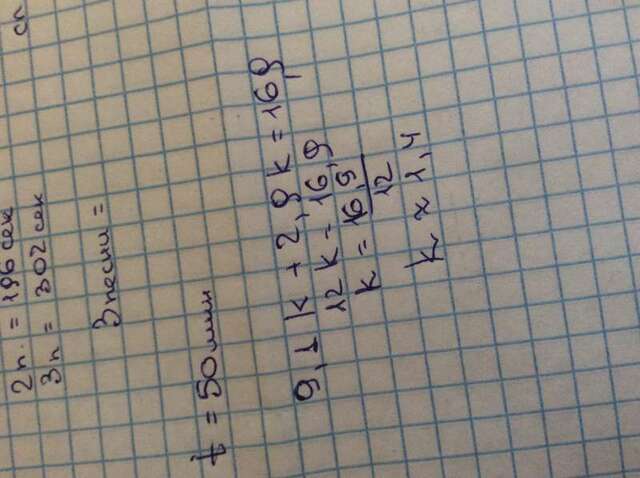 2п. = 196 сек
сп
3п = 302 сек
3 песни =
t = 50 мин
9,1 k + 2,9 k = 16,9
12 k = 16,9
k = 16,9/12
k ≈ 1,4